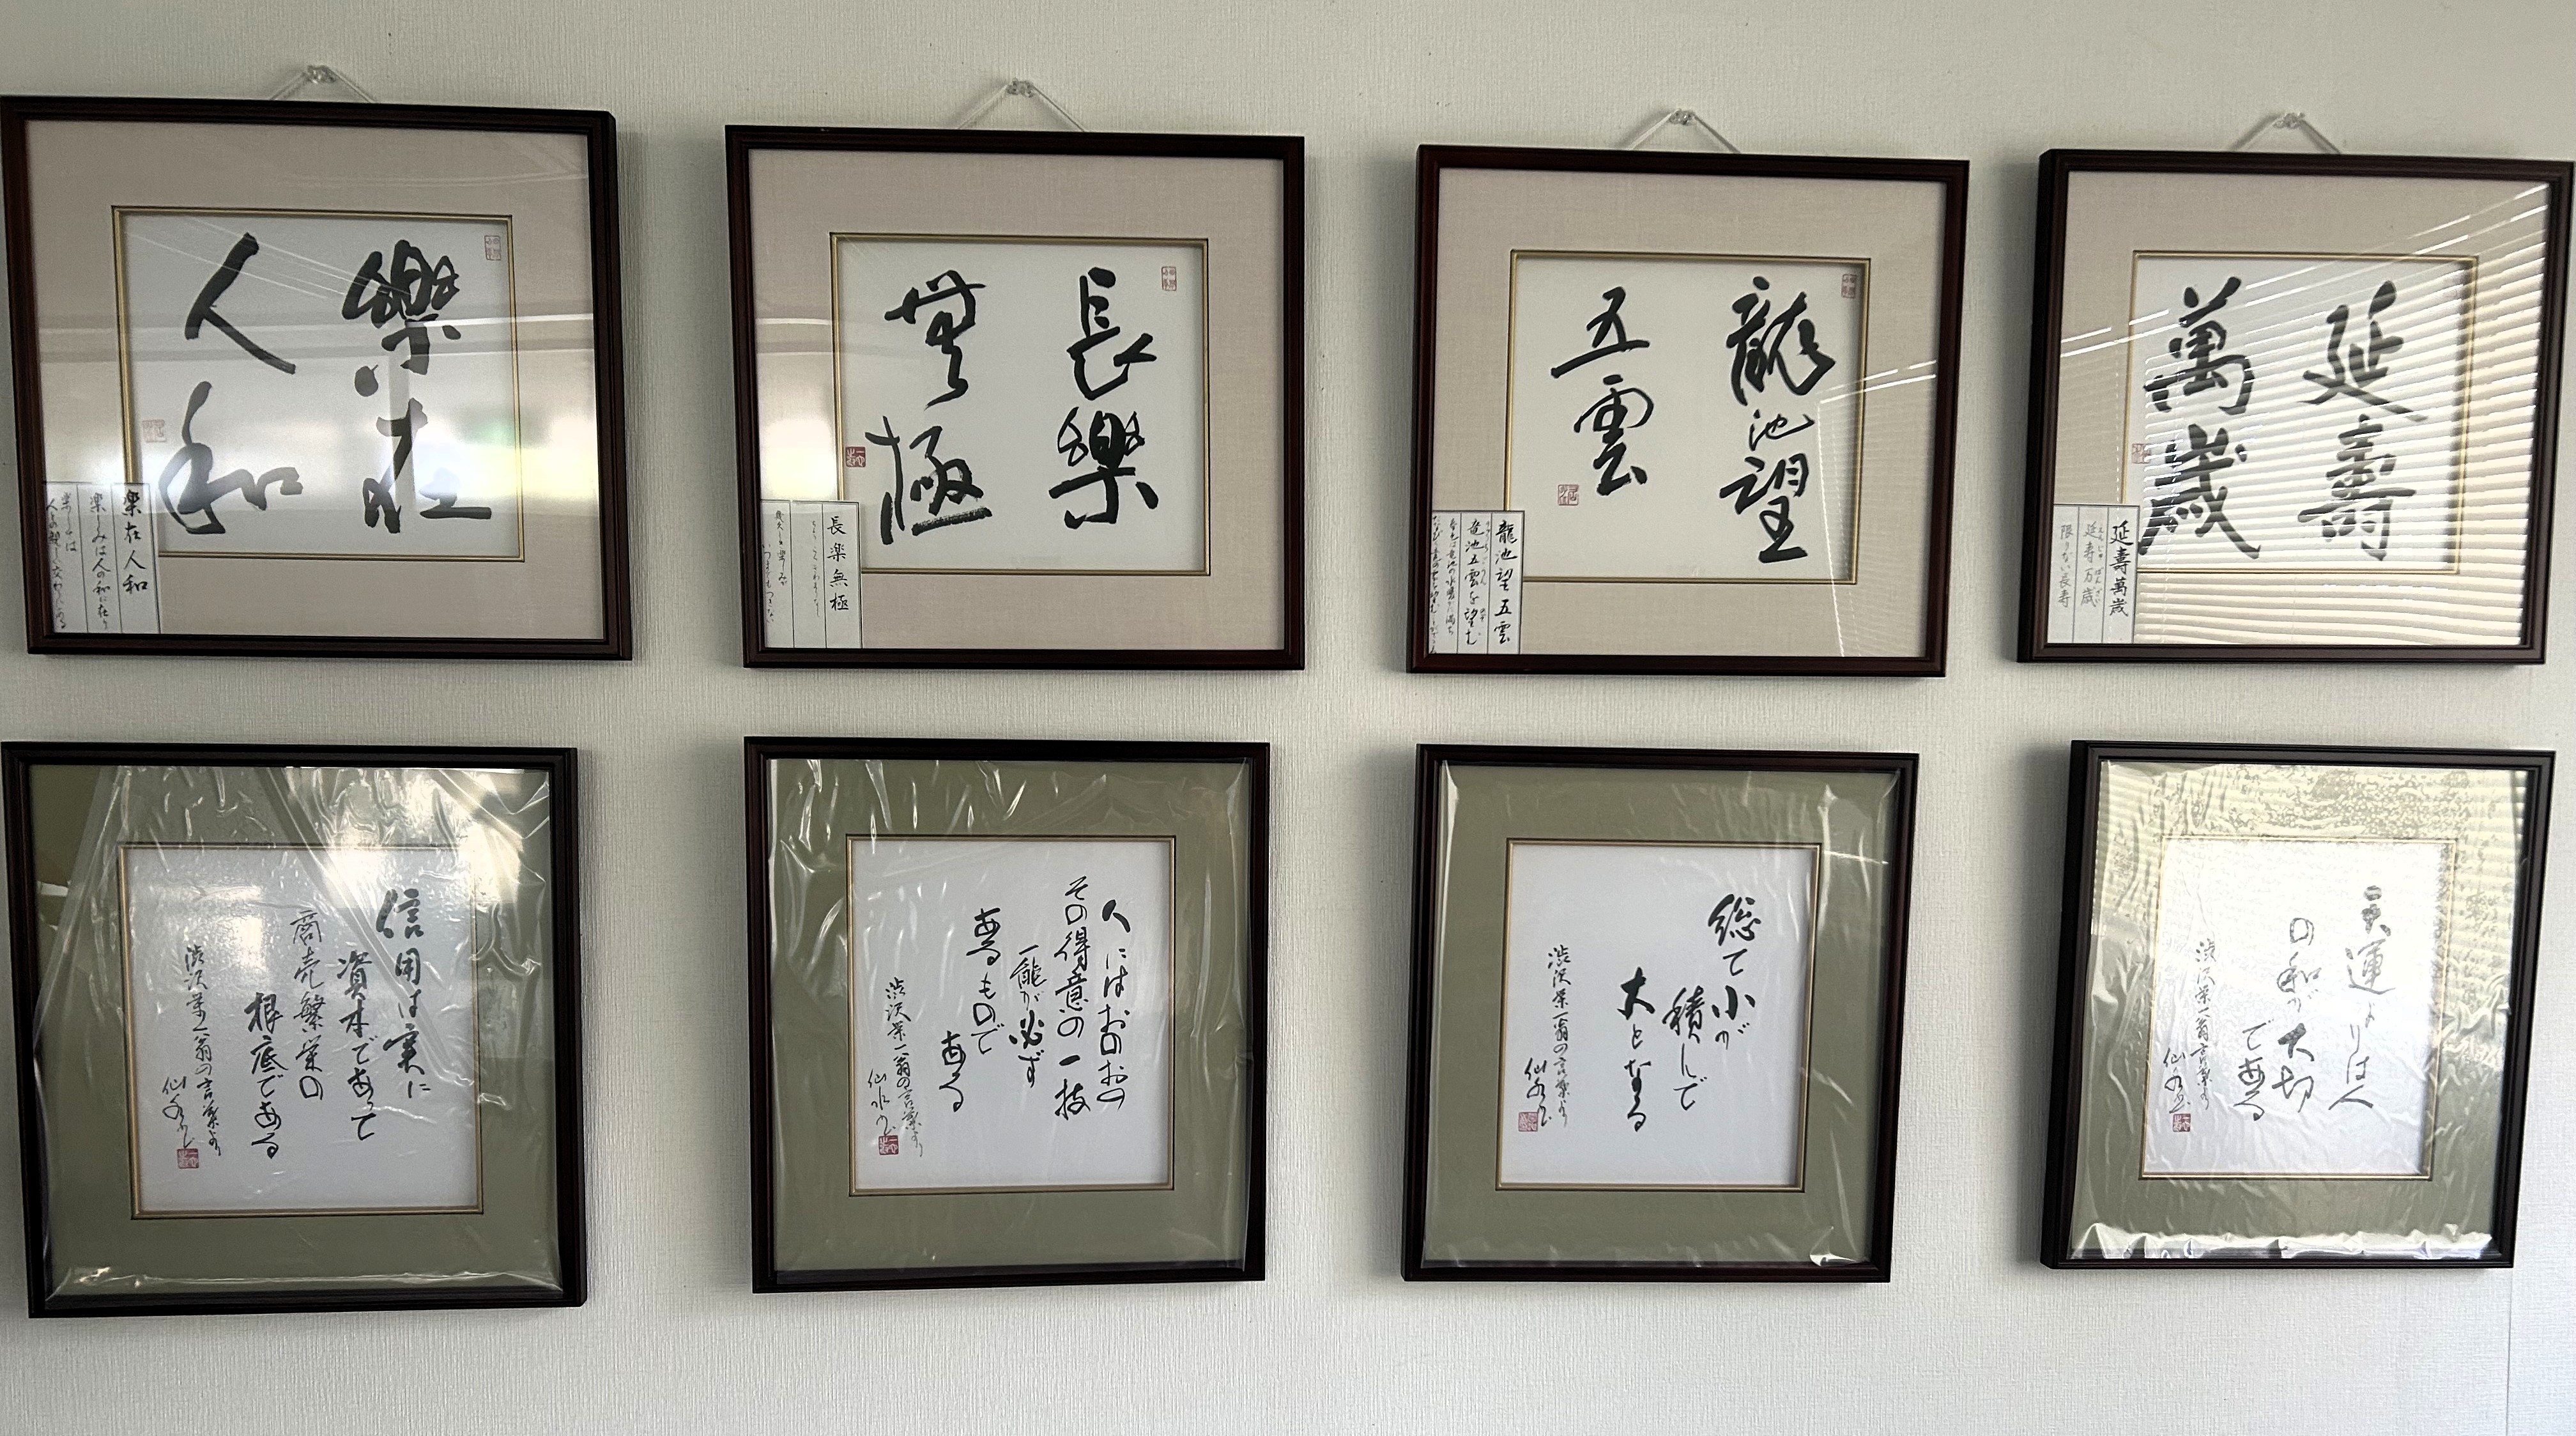 樂在
人和
楽在人和
楽しみは人の和に在り
長樂
無極
長楽無極
龍池望
五雲
龍池望五雲
竜池五雲を望む
延壽
萬歳
延壽萬歳
延寿万歳
限りない長寿
信用は実に
資本であって
商売繁栄の
根底である
渋沢栄一翁の言葉より
人にはおのおの
その得意の一技
一能が必ず
あるもので
ある
渋沢栄一翁の言葉より
仙水書
総て小が
積んで
大となる
渋沢栄一翁の言葉より
天運よりは人
の和が大切
である
渋沢栄一翁言葉より